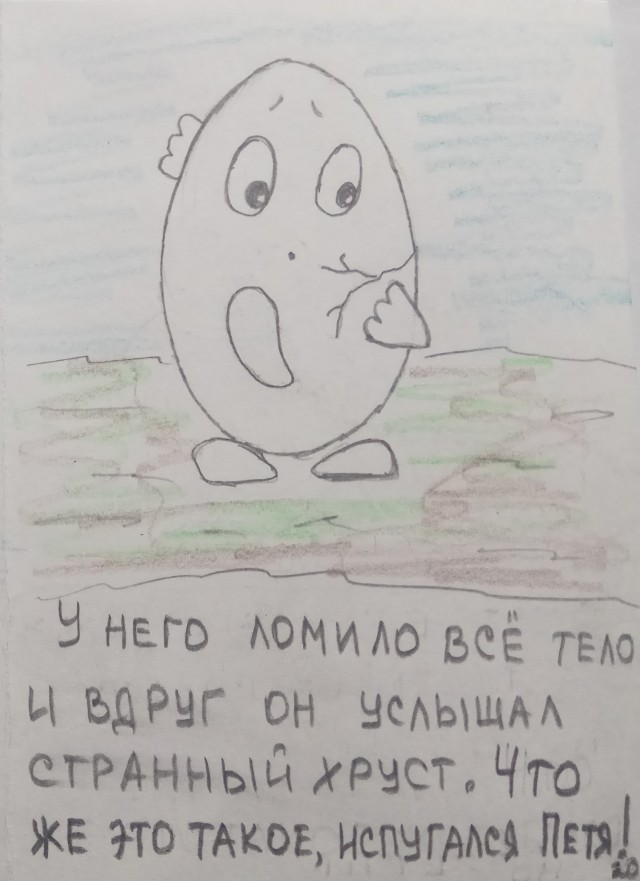 У НЕГО ЛОМИЛО ВСЁ ТЕЛО
И ВДРУГ ОН УСЛЫШАЛ
СТРАННЫЙ ХРУСТ. ЧТО
ЖЕ ЭТО ТАКОЕ, ИСПУГАЛСЯ ПЕТЯ!
20